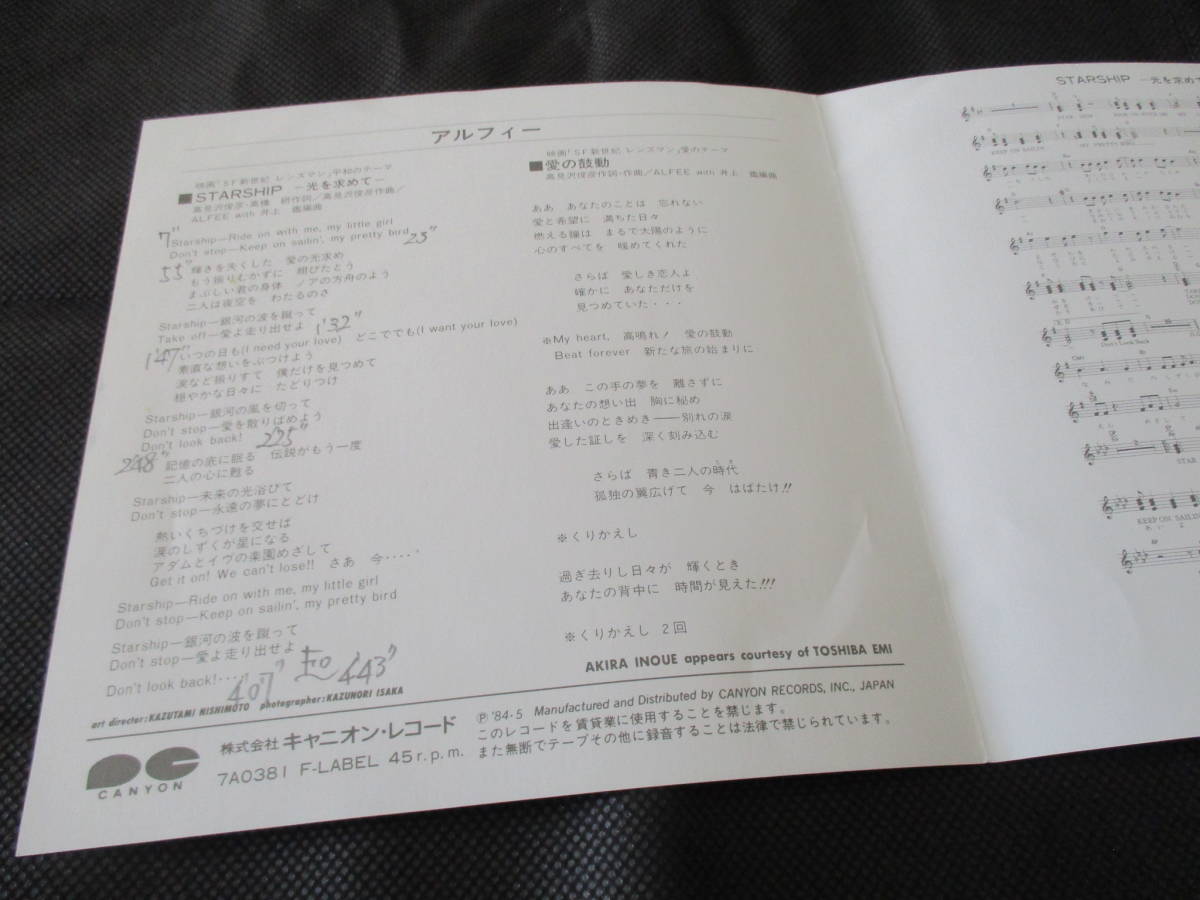 アルフィー
映画「SF新世紀 レンズマン」平和のテーマ
■STARSHIP －光を求めて－
高見沢俊彦・高橋 研作詞／高見沢俊彦作曲／
ALFEE with 井上 鑑編曲
7"
Starship—Ride on with me, my little girl
Don't stop—Keep on sailin', my pretty bird 23"
55" 輝きを失くした 愛の光求め
もう振りむかずに 翔びたとう
まぶしい君の身体 ノアの方舟のよう
二人は夜空を わたるのさ
Starship—銀河の波を蹴って
Take off—愛よ走り出せよ 1'32"
1'47" いつの日も(I need your love) どこででも(I want your love)
素直な想いをぶつけよう
涙など振りすて 僕だけを見つめて
穏やかな日々に たどりつけ
Starship—銀河の風を切って
Don't stop—愛を散りばめよう
Don't look back! 2'25"
2'48" 記憶の底に眠る 伝説がもう一度
二人の心に甦る
Starship—未来の光浴びて
Don't stop—永遠の夢にとどけ
熱いくちづけを交せば
涙のしずくが星になる
アダムとイヴの楽園めざして
Get it on! We can't lose!! さあ 今‥‥
Starship—Ride on with me, my little girl
Don't stop—Keep on sailin', my pretty bird
Starship—銀河の波を蹴って
Don't stop—愛よ走り出せよ
Don't look back!‥‥ 4'07" F.o 4'43"
art director:KAZUTAMI NISHIMOTO photographer:KAZUNORI ISAKA
映画「SF新世紀 レンズマン」愛のテーマ
■愛の鼓動
高見沢俊彦作詞・作曲／ALFEE with 井上 鑑編曲
ああ あなたのことは 忘れない
愛と希望に 満ちた日々
燃える瞳は まるで太陽のように
心のすべてを 暖めてくれた
さらば 愛しき恋人よ
確かに あなただけを
見つめていた・・・
※My heart, 高鳴れ! 愛の鼓動
Beat forever 新たな旅の始まりに
ああ この手の夢を 離さずに
あなたの想い出 胸に秘め
出逢いのときめき——別れの涙
愛した証しを 深く刻み込む
さらば 青き二人の時代
孤独の翼広げて 今 はばたけ!!
※くりかえし
過ぎ去りし日々が 輝くとき
あなたの背中に 時間が見えた!!!
※くりかえし 2回
AKIRA INOUE appears courtesy of TOSHIBA EMI
CANYON
株式会社 キャニオン・レコード
7A0381 F-LABEL 45 r.p.m.
Ⓟ '84・5 Manufactured and Distributed by CANYON RECORDS, INC., JAPAN
このレコードを賃貸業に使用することを禁じます。
また無断でテープその他に録音することは法律で禁じられています。
STARSHIP －光を求めて
KEEP ON SAILIN'
MY PRETTY BIRD
Don't Look Back
STAR
KEEP ON SAILIN